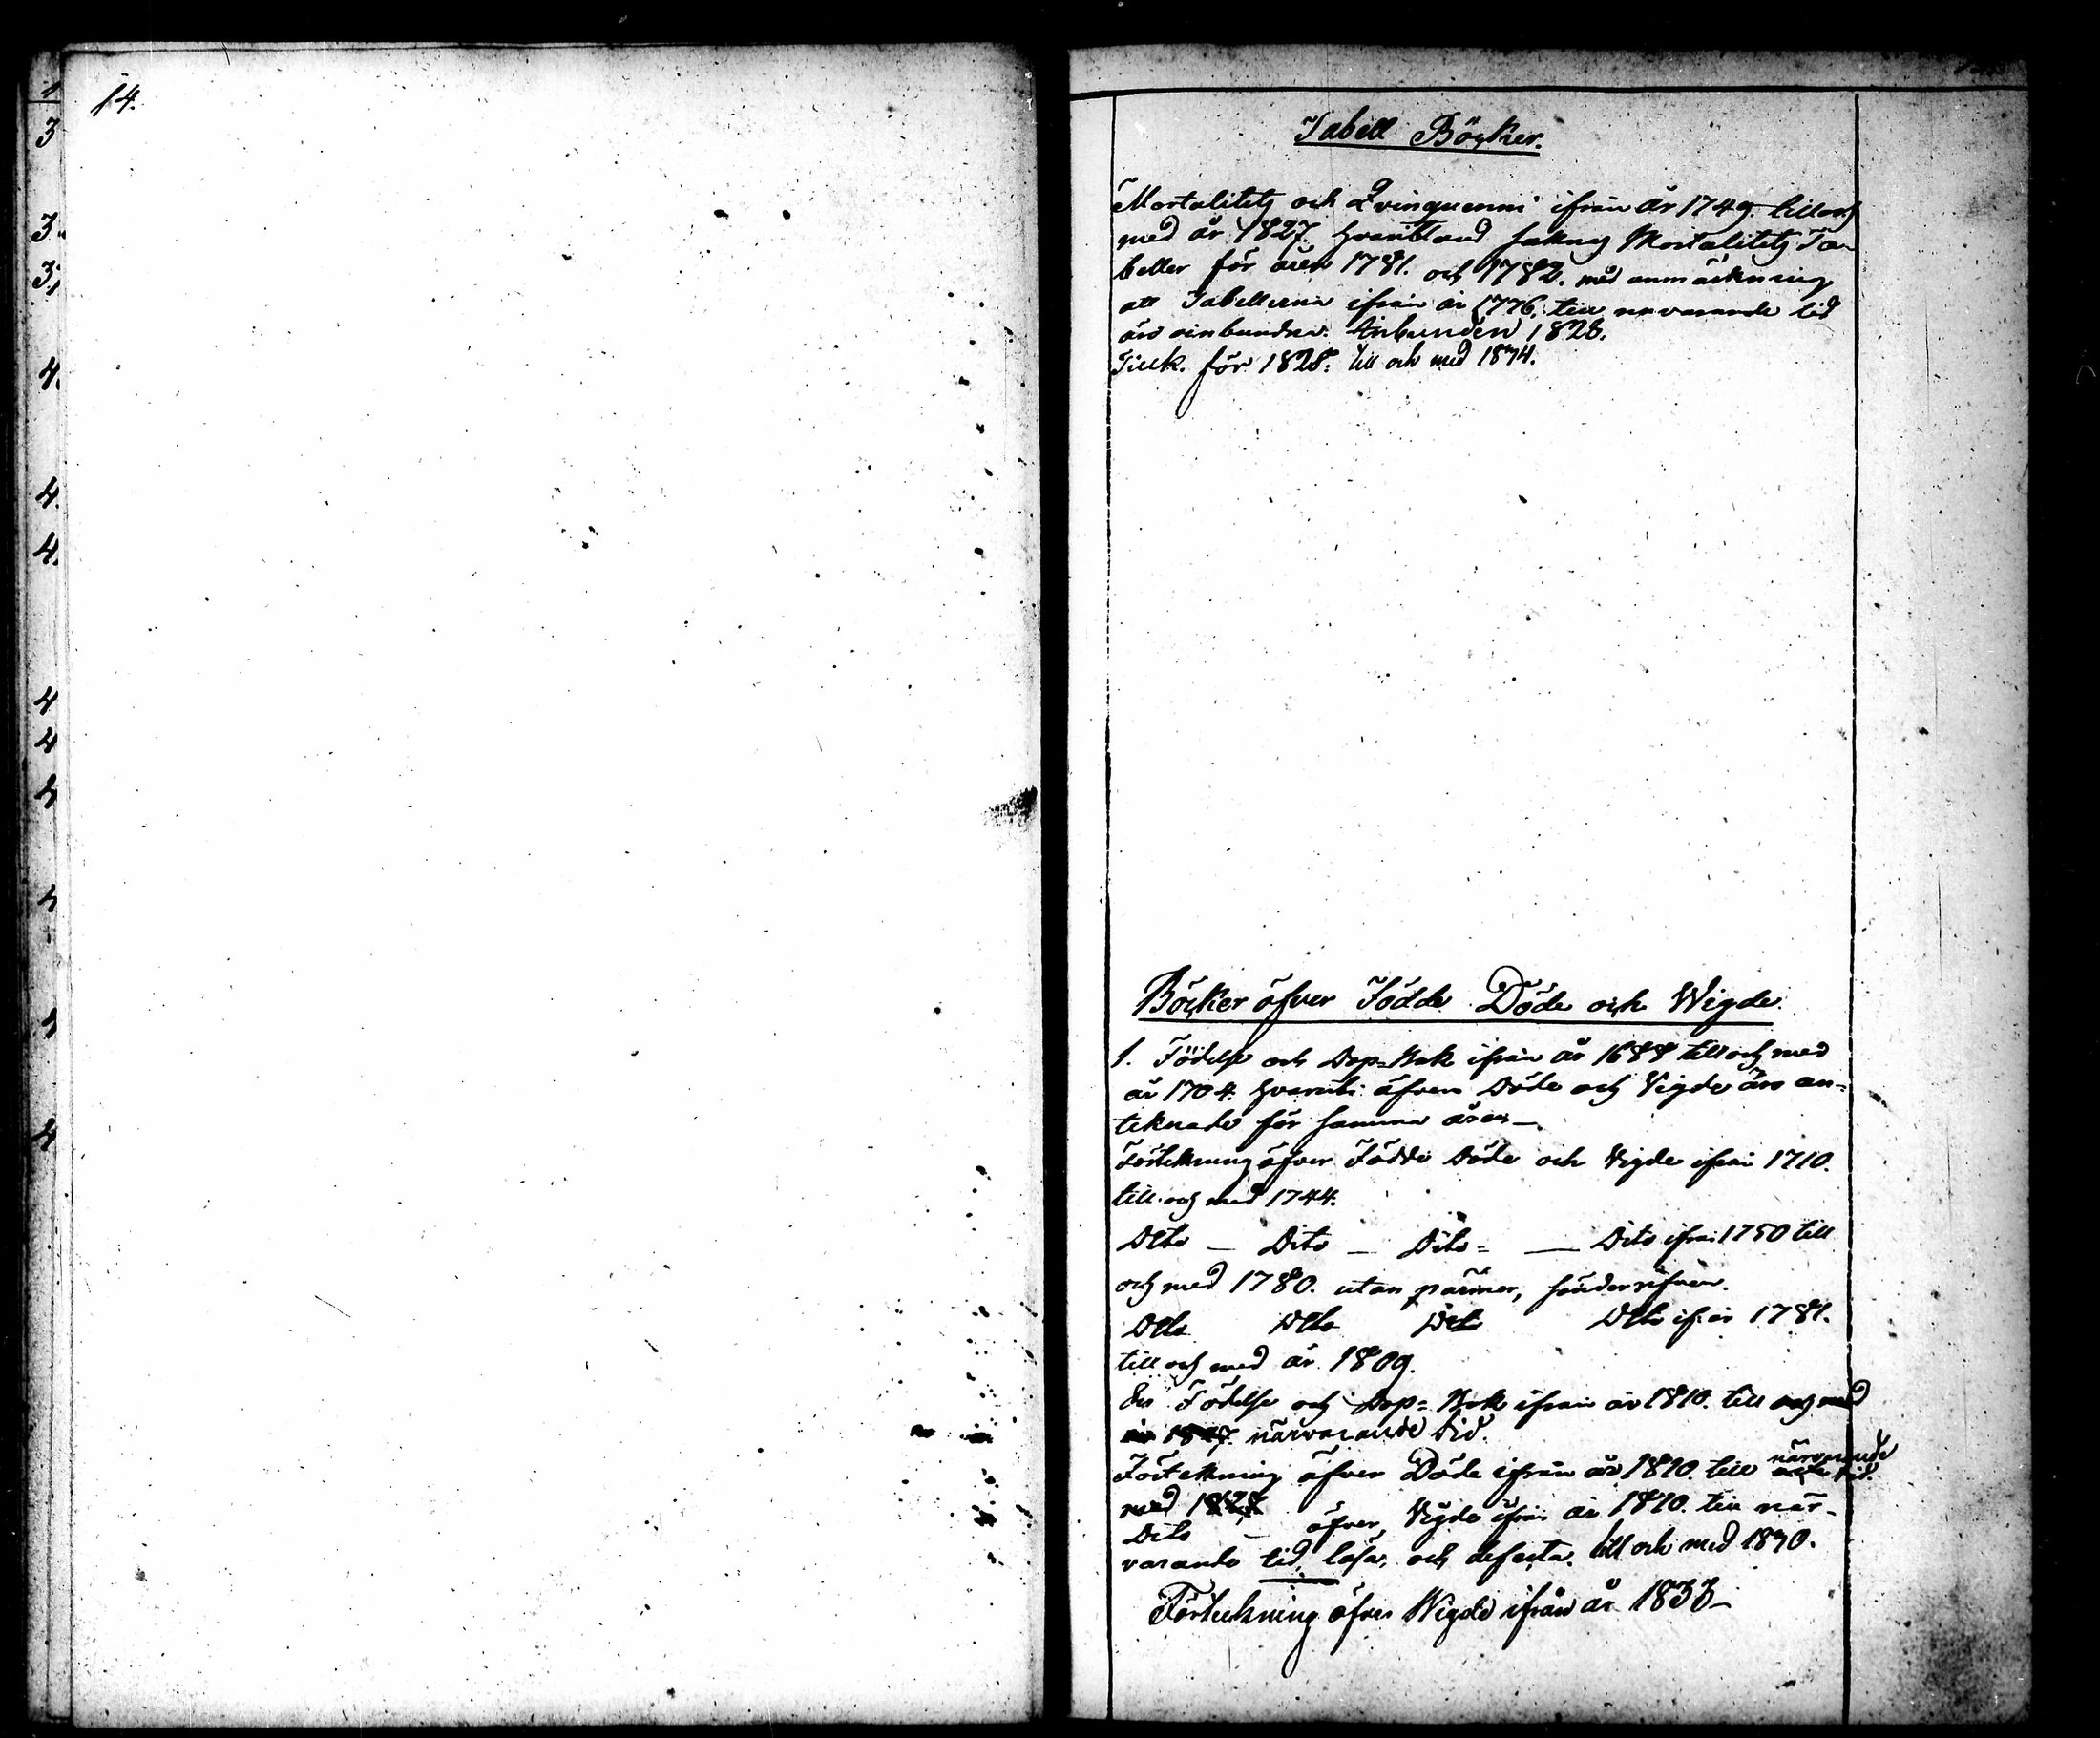 1
3
3.
3.
4.
4.
4.
4
4
4
4
4
4
14.
Tabell Böcker.
Mortalitets och Qvinquenni ifrån år 1749. till och
med år 1827. hvaribland saknas Mortalitets Ta-
beller för åren 1781. och 1782. med anmärkning
att Tabellerna ifrån år 1776. till nuvarande tid
äro oinbundna. Inbunden 1828.
Tillk. för 1828. till och med 1874.
Böcker öfver Födde Döde och Wigde.
1. Födelse och Dop-Bok ifrån år 1688 till och med
år 1704. hvaruti äfven Döde och Vigde äro an-
teknade för samma åren —
Förtekning öfver Födde Döde och Vigde ifrån 1710.
till och med 1744.
Dito — Dito — Dito = — Dito ifrån 1750 till
och med 1780. utan pärmer, sönderrifven.
Dito Dito Dito Dito ifrån 1781.
till och med år 1809.
En Födelse och Dop-Bok ifrån år 1810. till och med
år 1827. närvarande tid.
Förtekning öfver Döde ifrån år 1810 till närvarande tid.
med 1827
Dito — öfver Vigde ifrån år 1810. till när-
varande tid, lösa, och defecta. till och med 1870.
Förteckning öfver Wigde ifrån år 1833 —